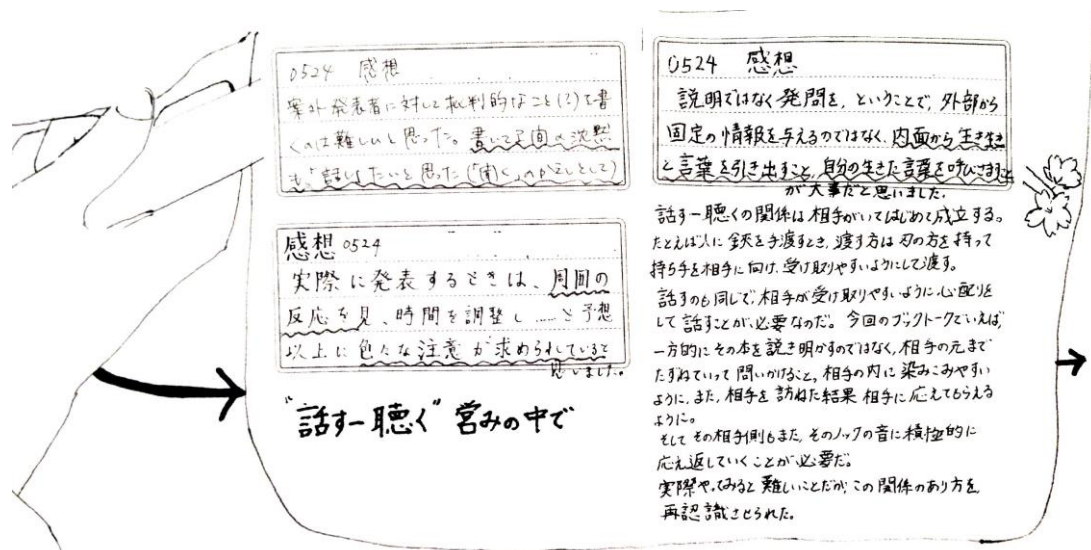 0524 感想
案外発表者に対して批判的なこと(?)を書
くのは難しいと思った。書いてる間の沈黙
も「話し」たいと思った(「聞く」の
感想 0524
実際に発表するときは、周囲の
反応を見、時間を調整し……と予想
以上に色んな注意が求められていると
思いました。
"話す―聴く" 営みの中で
0524 感想
説明ではなく発問を、ということで、外部から
固定の情報を与えるのではなく、内面から生き生き
と言葉を引き出すこと、自分の生きた言葉を呼びさますこと
が大事だと思いました。
話す―聴くの関係は相手がいてはじめて成立する。
たとえば人に鋏を手渡すとき、渡す方は刃の方を持って
持ち手を相手に向け、受け取りやすいようにして渡す。
話すのも同じで、相手が受け取りやすいように心配りを
して話すことが必要なのだ。今回のブックトークでいえば、
一方的にその本を説き明かすのではなく、相手の元まで
たずねていって問いかけること、相手の内に染みこみやすい
ように、また、相手を訪ねた結果相手に応えてもらえる
ように。
そしてその相手側もまた、そのノックの音に積極的に
応え返していくことが必要だ。
実際やってみると難しいことだが、この関係のあり方を
再認識させられた。